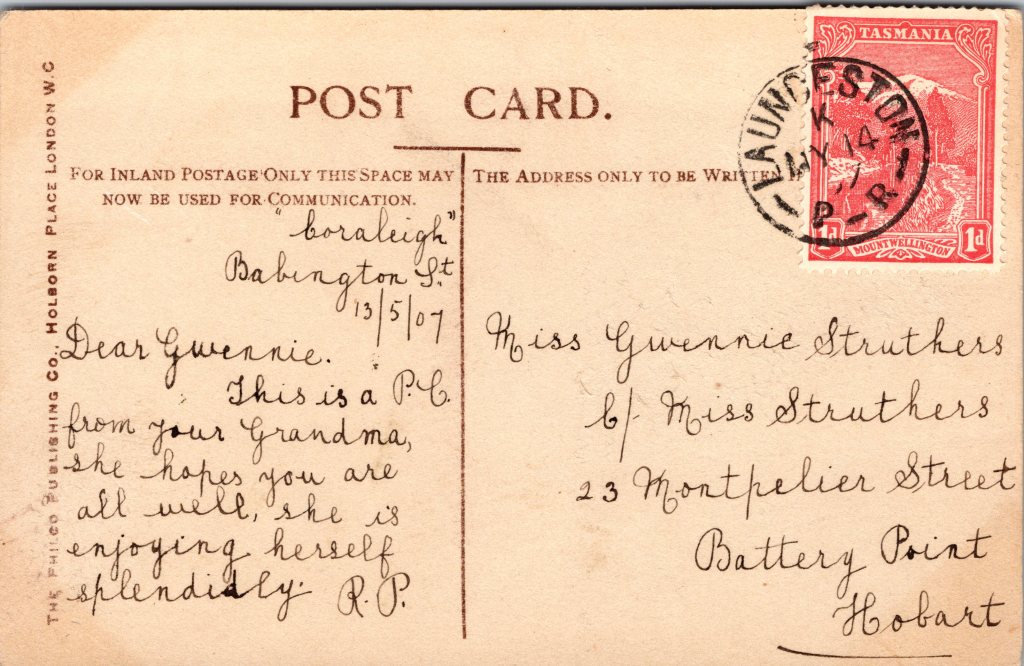 POST CARD.
FOR INLAND POSTAGE ONLY THIS SPACE MAY
NOW BE USED FOR COMMUNICATION.
THE ADDRESS ONLY TO BE WRITTEN
THE PHILCO PUBLISHING CO., HOLBORN PLACE LONDON W.C
TASMANIA
1d
MOUNT WELLINGTON
1d
LAUNCESTON
K
MY 14
07
P - R
"Coraleigh"
Babington St
13/5/07
Dear Gwennie.
This is a P.C.
from your Grandma,
she hopes you are
all well, she is
enjoying herself
splendidly.
R.P.
Miss Gwennie Struthers
C/- Miss Struthers
23 Montpelier Street
Battery Point
Hobart